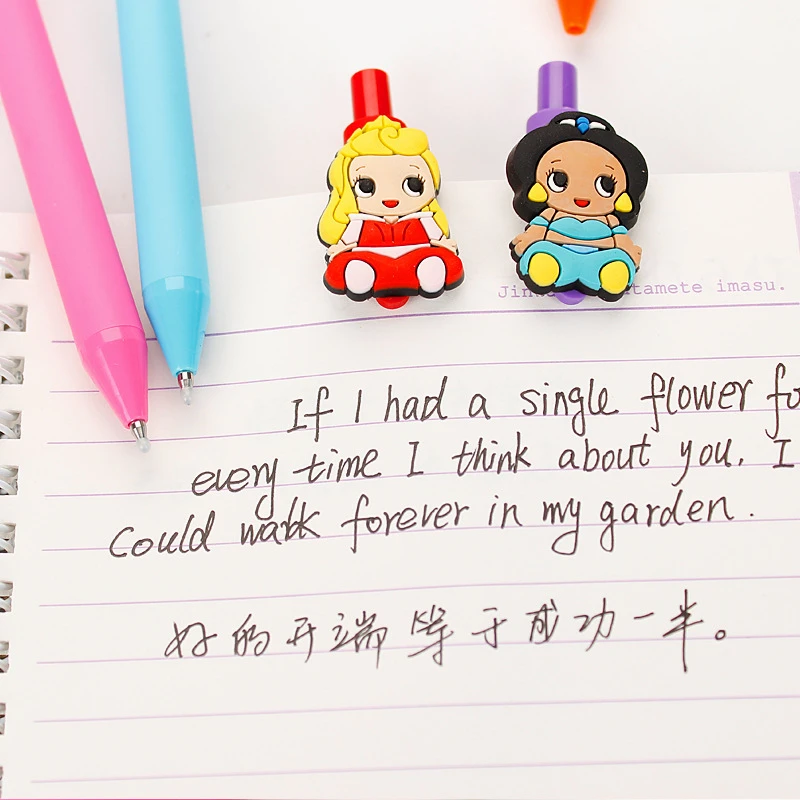 tamete imasu.
If I had a single flower
every time I think about you. I
Could walk forever in my garden.
好的开端等于成功一半。